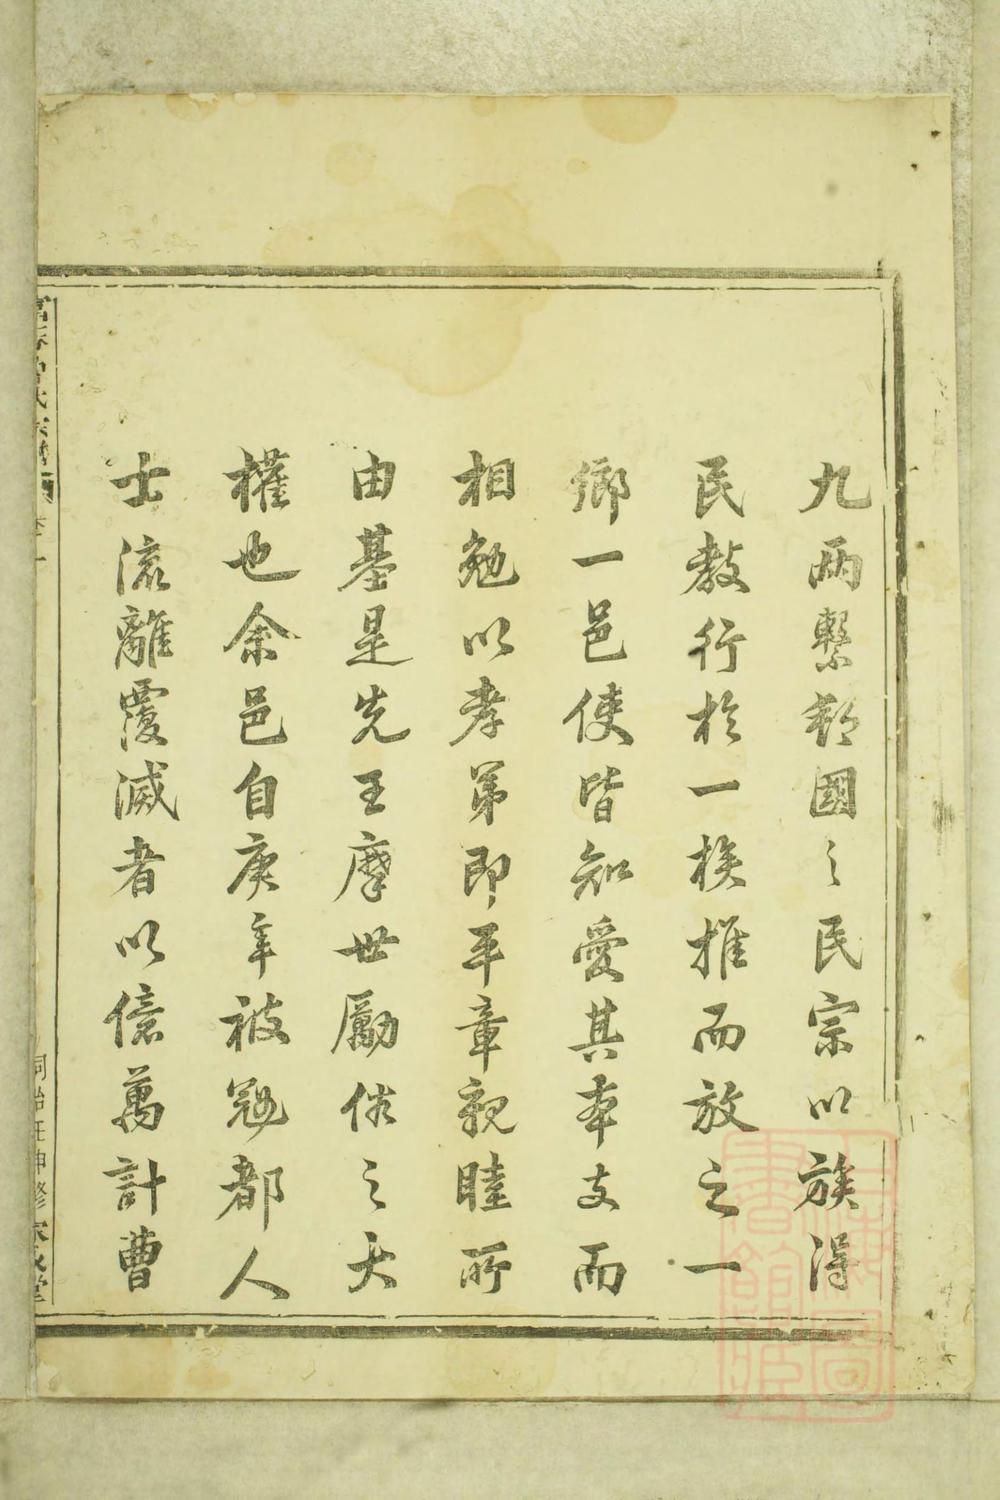 九兩繫邦國之民宗以族得
民教行於一族推而放之一
鄉一邑使皆知愛其本支而
相勉以孝弟即平章親睦所
由基是先王摩世勵俗之大
權也余邑自庚辛被寇都人
士流離覆滅者以億萬計曹
同治壬申修